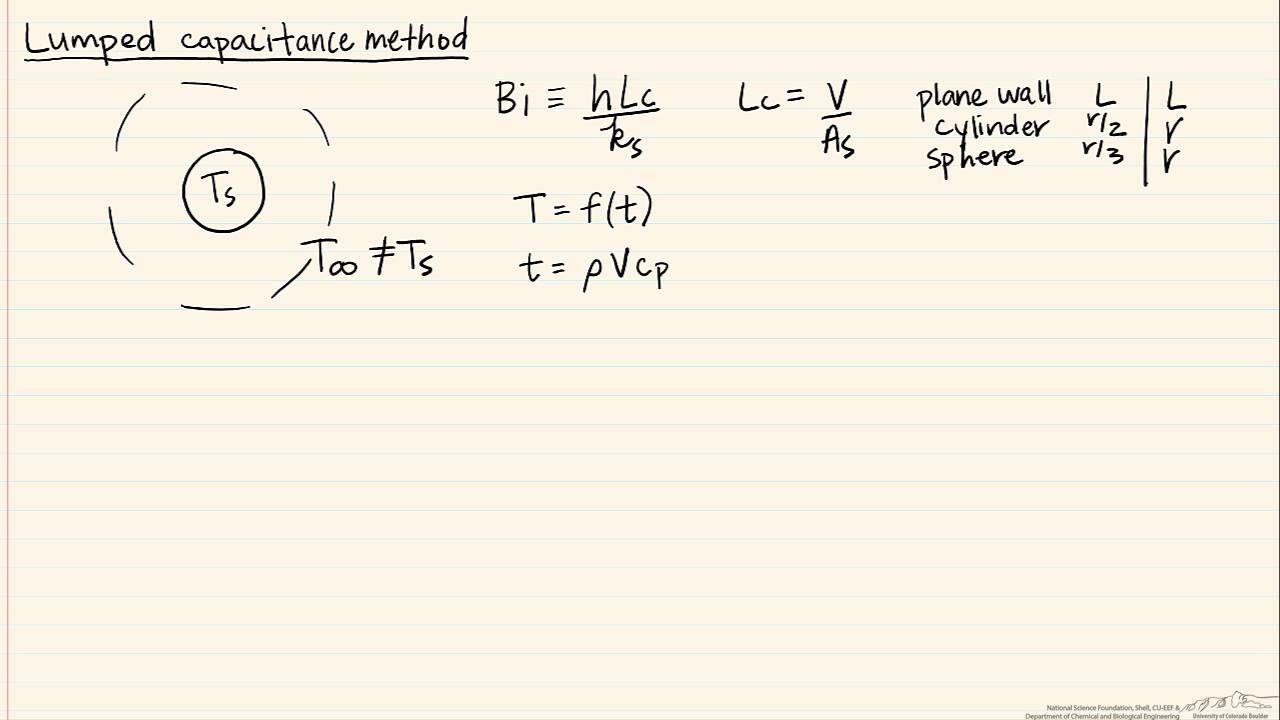 Lumped capacitance method
Ts
T∞ ≠ Ts
Bi ≡ hLc/ks
Lc = V/As
plane wall L | L
cylinder r/2 | r
sphere r/3 | r
T = f(t)
t = ρVcp
National Science Foundation, Shell, CU-EEF &
Department of Chemical and Biological Engineering
University of Colorado Boulder